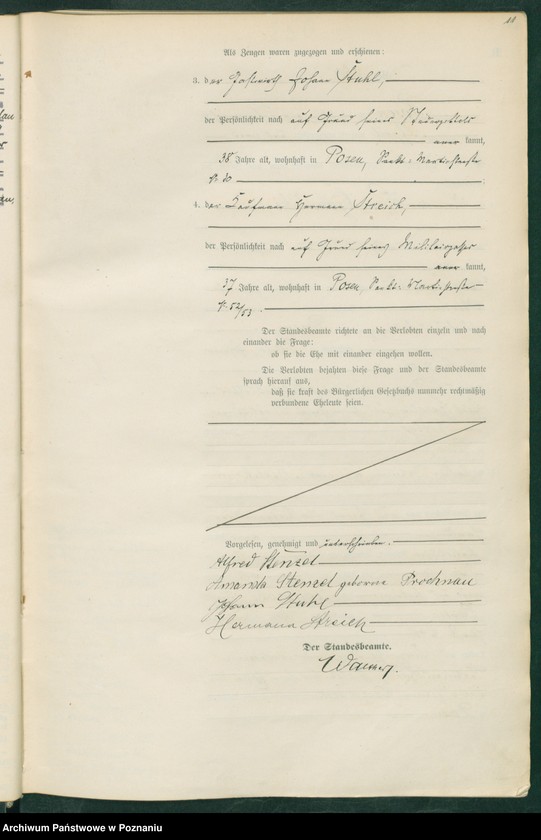 Als Zeugen waren zugezogen und erschienen:
3. der Gastwirth Johann Stuhl,
der Persönlichkeit nach auf Grund seines Steuerzettels
aner kannt,
38 Jahre alt, wohnhaft in Posen, Sankt Martinstraße
;
4. der Kaufmann Hermann Streich,
der Persönlichkeit nach auf Grund seines Militairpasses
aner kannt,
37 Jahre alt, wohnhaft in Posen, Sankt Martinstraße
52/53.
Der Standesbeamte richtete an die Verlobten einzeln und nach
einander die Frage:
ob sie die Ehe mit einander eingehen wollen.
Die Verlobten bejahten diese Frage und der Standesbeamte
sprach hierauf aus,
daß sie kraft des Bürgerlichen Gesetzbuchs nunmehr rechtmäßig
verbundene Eheleute seien.
Vorgelesen, genehmigt und unterschrieben.
Alfred Stenzel
Amanda Stenzel geborne Prochnau
Johann Stuhl
Hermann Streich
Der Standesbeamte.
Archiwum Państwowe w Poznaniu